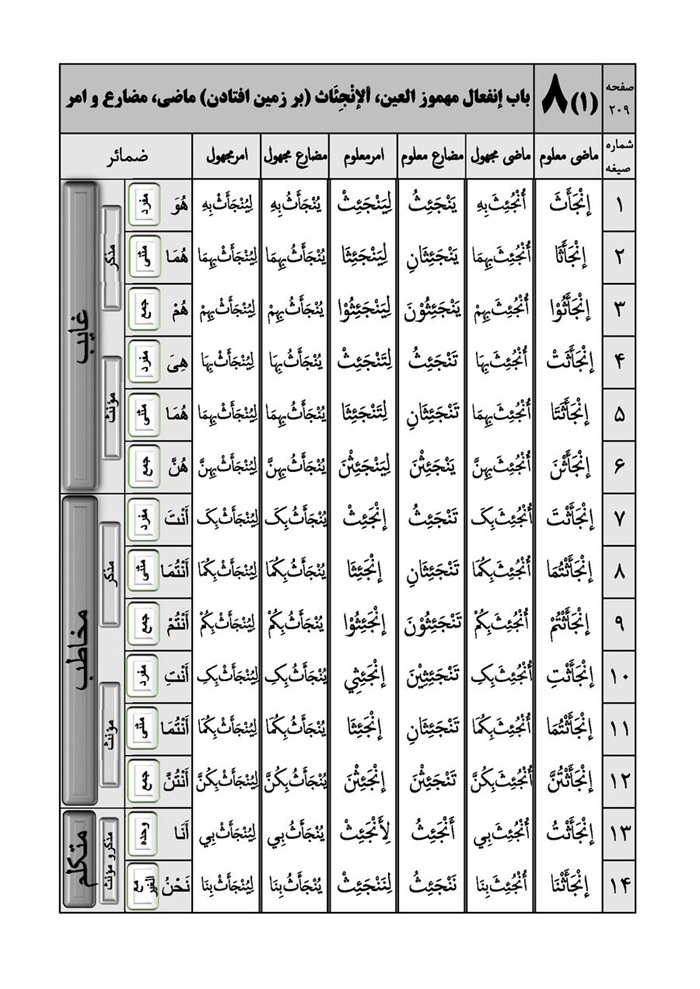 صفحه ۲۰۹ ۸(۱) باب إنفعال مهموز العین، ألإنْجِئَاث (بر زمین افتادن) ماضی، مضارع و امر
شماره صیغه ماضی معلوم ماضی مجهول مضارع معلوم امرمعلوم مضارع مجهول امرمجهول ضمائر
۱ إنْجَأَثَ أُنْجُئِثَ بِهِ یَنْجَئِثُ لِیَنْجَئِثْ یُنْجَأَثُ بِهِ لِیُنْجَأَثْ بِهِ هُوَ مفرد مذکر غایب
۲ إنْجَأَثَا أُنْجُئِثَ بِهِمَا یَنْجَئِثَانِ لِیَنْجَئِثَا یُنْجَأَثُ بِهِمَا لِیُنْجَأَثْ بِهِمَا هُمَا مثنی
۳ إنْجَأَثُوْا أُنْجُئِثَ بِهِمْ یَنْجَئِثُوْنَ لِیَنْجَئِثُوْا یُنْجَأَثُ بِهِمْ لِیُنْجَأَثْ بِهِمْ هُمْ جمع
۴ إنْجَأَثَتْ أُنْجُئِثَ بِهَا تَنْجَئِثُ لِتَنْجَئِثْ یُنْجَأَثُ بِهَا لِیُنْجَأَثْ بِهَا هِیَ مفرد مؤنث
۵ إنْجَأَثَتَا أُنْجُئِثَ بِهِمَا تَنْجَئِثَانِ لِتَنْجَئِثَا یُنْجَأَثُ بِهِمَا لِیُنْجَأَثْ بِهِمَا هُمَا مثنی
۶ إنْجَأَثْنَ أُنْجُئِثَ بِهِنَّ یَنْجَئِثْنَ لِیَنْجَئِثْنَ یُنْجَأَثُ بِهِنَّ لِیُنْجَأَثْ بِهِنَّ هُنَّ جمع
۷ إنْجَأَثْتَ أُنْجُئِثَ بِکَ تَنْجَئِثُ إنْجَئِثْ یُنْجَأَثُ بِکَ لِیُنْجَأَثْ بِکَ أَنْتَ مفرد مذکر مخاطب
۸ إنْجَأَثْتُمَا أُنْجُئِثَ بِکُمَا تَنْجَئِثَانِ إنْجَئِثَا یُنْجَأَثُ بِکُمَا لِیُنْجَأَثْ بِکُمَا أَنْتُمَا مثنی
۹ إنْجَأَثْتُمْ أُنْجُئِثَ بِکُمْ تَنْجَئِثُوْنَ إنْجَئِثُوْا یُنْجَأَثُ بِکُمْ لِیُنْجَأَثْ بِکُمْ أَنْتُمْ جمع
۱۰ إنْجَأَثْتِ أُنْجُئِثَ بِکِ تَنْجَئِثِیْنَ إنْجَئِثِي یُنْجَأَثُ بِکِ لِیُنْجَأَثْ بِکِ أَنْتِ مفرد مؤنث
۱۱ إنْجَأَثْتُمَا أُنْجُئِثَ بِکُمَا تَنْجَئِثَانِ إنْجَئِثَا یُنْجَأَثُ بِکُمَا لِیُنْجَأَثْ بِکُمَا أَنْتُمَا مثنی
۱۲ إنْجَأَثْتُنَّ أُنْجُئِثَ بِکُنَّ تَنْجَئِثْنَ إنْجَئِثْنَ یُنْجَأَثُ بِکُنَّ لِیُنْجَأَثْ بِکُنَّ أَنْتُنَّ جمع
۱۳ إنْجَأَثْتُ أُنْجُئِثَ بِي أَنْجَئِثُ لِأَنْجَئِثْ یُنْجَأَثُ بِي لِیُنْجَأَثْ بِي أَنَا وحده مذکر و مؤنث متکلم
۱۴ إنْجَأَثْنَا أُنْجُئِثَ بِنَا نَنْجَئِثُ لِنَنْجَئِثْ یُنْجَأَثُ بِنَا لِیُنْجَأَثْ بِنَا نَحْنُ مع الغیر